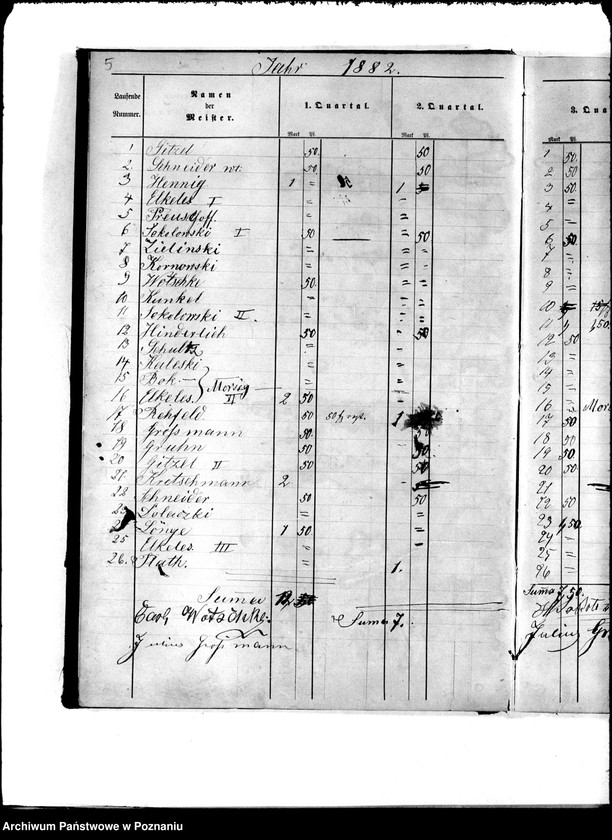 5 Jahr 1882.
Laufende Nummer. Namen der Meister. 1. Quartal. 2. Quartal. 3. Qua
Mark Pf. Mark Pf. Mark Pf.
1 Gitzel 50. 50 1 50.
2 Schneider 50. 50 2 50
3 Hennig 1 " 1 3 50.
4 Elkeles I " " 4 "
5 Preushoff. " " 5 "
6 Sokolowski I 50 50 6 50.
7 Zielinski " " 7 "
8 Kornowski " " 8 "
9 Wotschke 50. " 9 "
10 Kunkel " " 10
11 Sokolowski II. " " 11 1 50.
12 Hinderlich 50 50 12 50
13 " " 13 "
14 Kaleski " " 14 "
15 Bok " " 15 "
16 Elkeles. II Morzig 2 50 " 16 Morz
17 Rehfeld 50 1 17 50
18 Grossmann 50. 50 18 50
19 Gruhn 50 50 19 50
20 Gitzel II 50 50 20 50
21. Kretschmann 2 " 21 "
22 Schneider 50 50 22 50
23 " " 23 1 50
Länge 1 50. " 24 "
25 Elkeles. III " " 25 "
26. Rath. " 1. 26 "
Suma Suma 7,50.
Carl Wotschke. Suma 7.
Julius Großmann Julius Gr
Archiwum Państwowe w Poznaniu